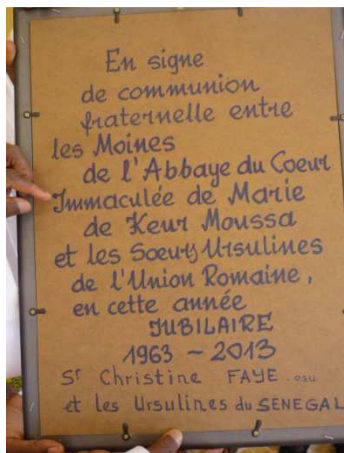 En signe
de communion
fraternelle entre
les Moines
de l'Abbaye du Coeur
Immaculée de Marie
de Keur Moussa
et les Soeurs Ursulines
de l'Union Romaine,
en cette année
JUBILAIRE
1963 ~ 2013
Sr Christine FAYE. osu
et les Ursulines du SENEGAL